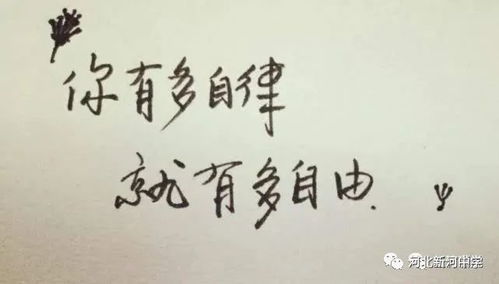 你有多自律
就有多自由.
河北新河中学